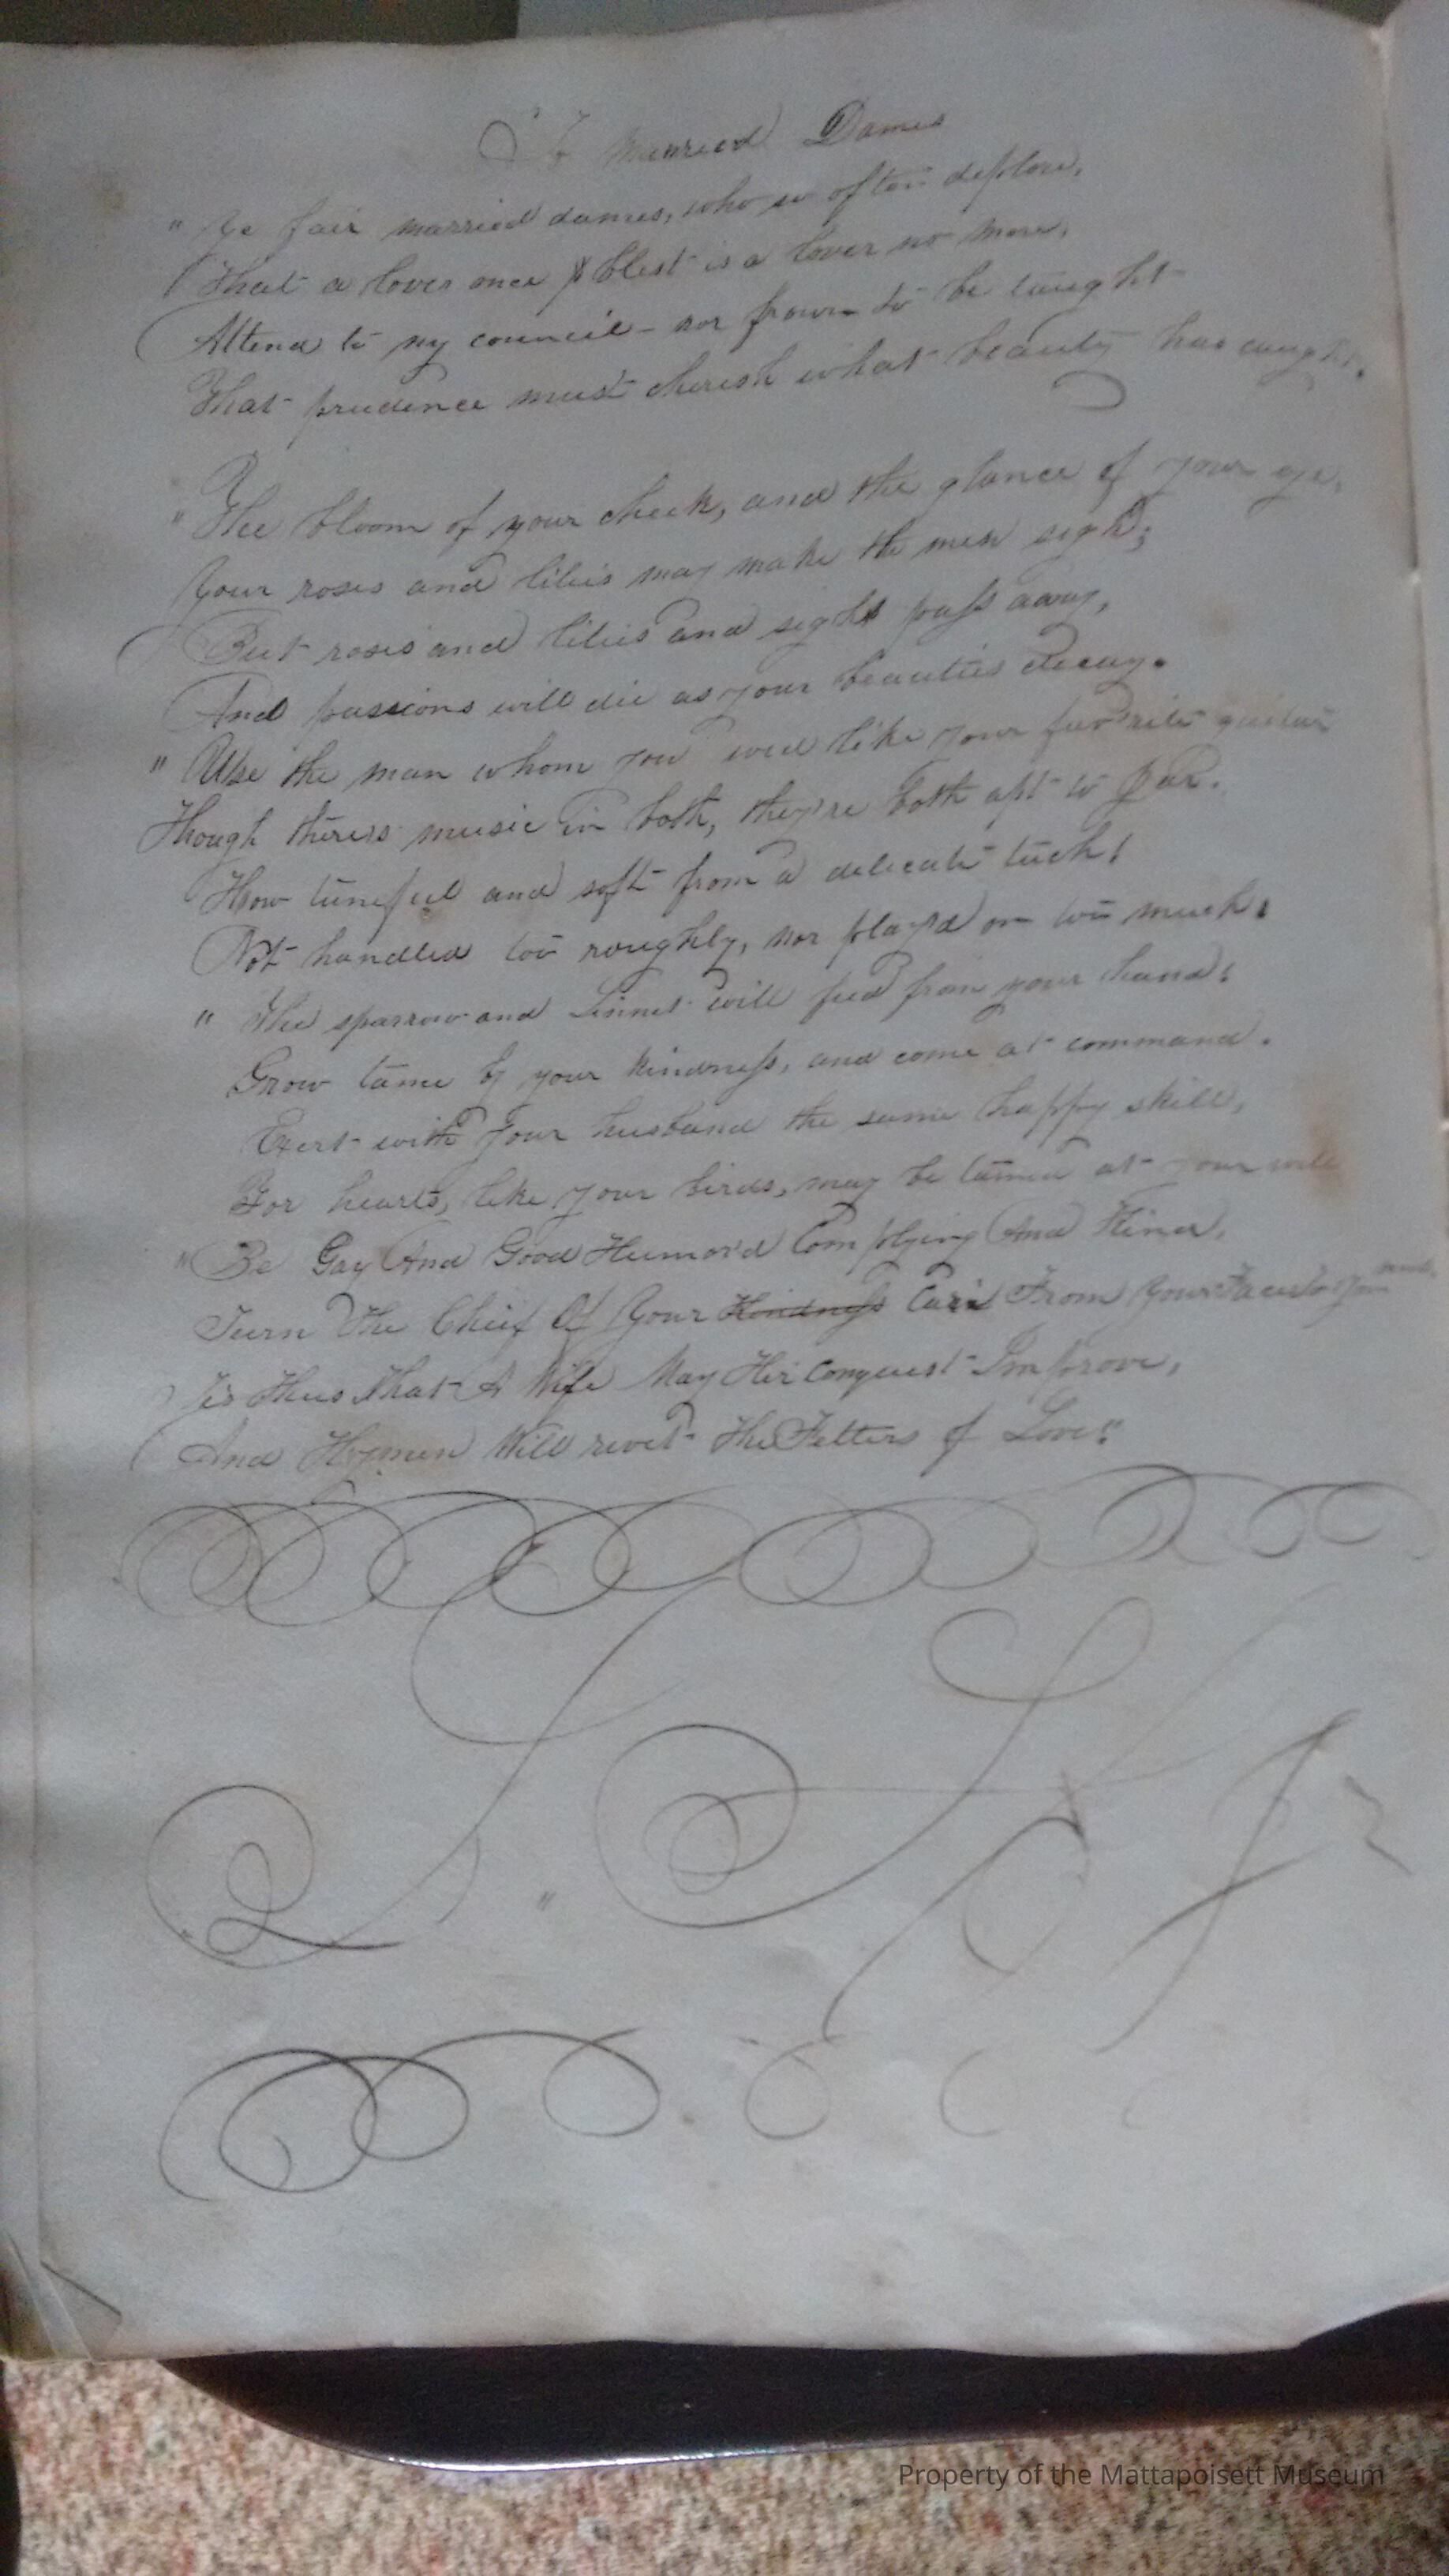 To Married Dames
" Ye fair married dames, who so often deplore,
That a lover once blest is a lover no more,
Attend to my council - nor frown to be taught
That prudence must cherish what beauty has caught.
" The bloom of your cheek, and the glance of your eye,
Your roses and lilies may make the men sigh;
But roses and lilies and sighs pass away,
And passions will die as your beauties decay.
" Use the man whom you wed like your fav'rite guitar
Though there's music in both, they're both apt to jar.
How tuneful and soft from a delicate tuch!
Not handled too roughly, nor play'd on too much!
" The sparrow and Linnet will feed from your hand!
Grow tame by your kindness, and come at command.
Exert with your husband the same happy skill,
For hearts, like your birds, may be tamed at your will
" Be Gay And Good Humor'd Complying And Kind,
Turn The Chief Of Your Kindness Care From Your Face to Your mind.
Tis Thus That A Wife May Her Conquest Improve,
And Hymen Will rivet The Fetters of Love"
Property of the Mattapoisett Museum